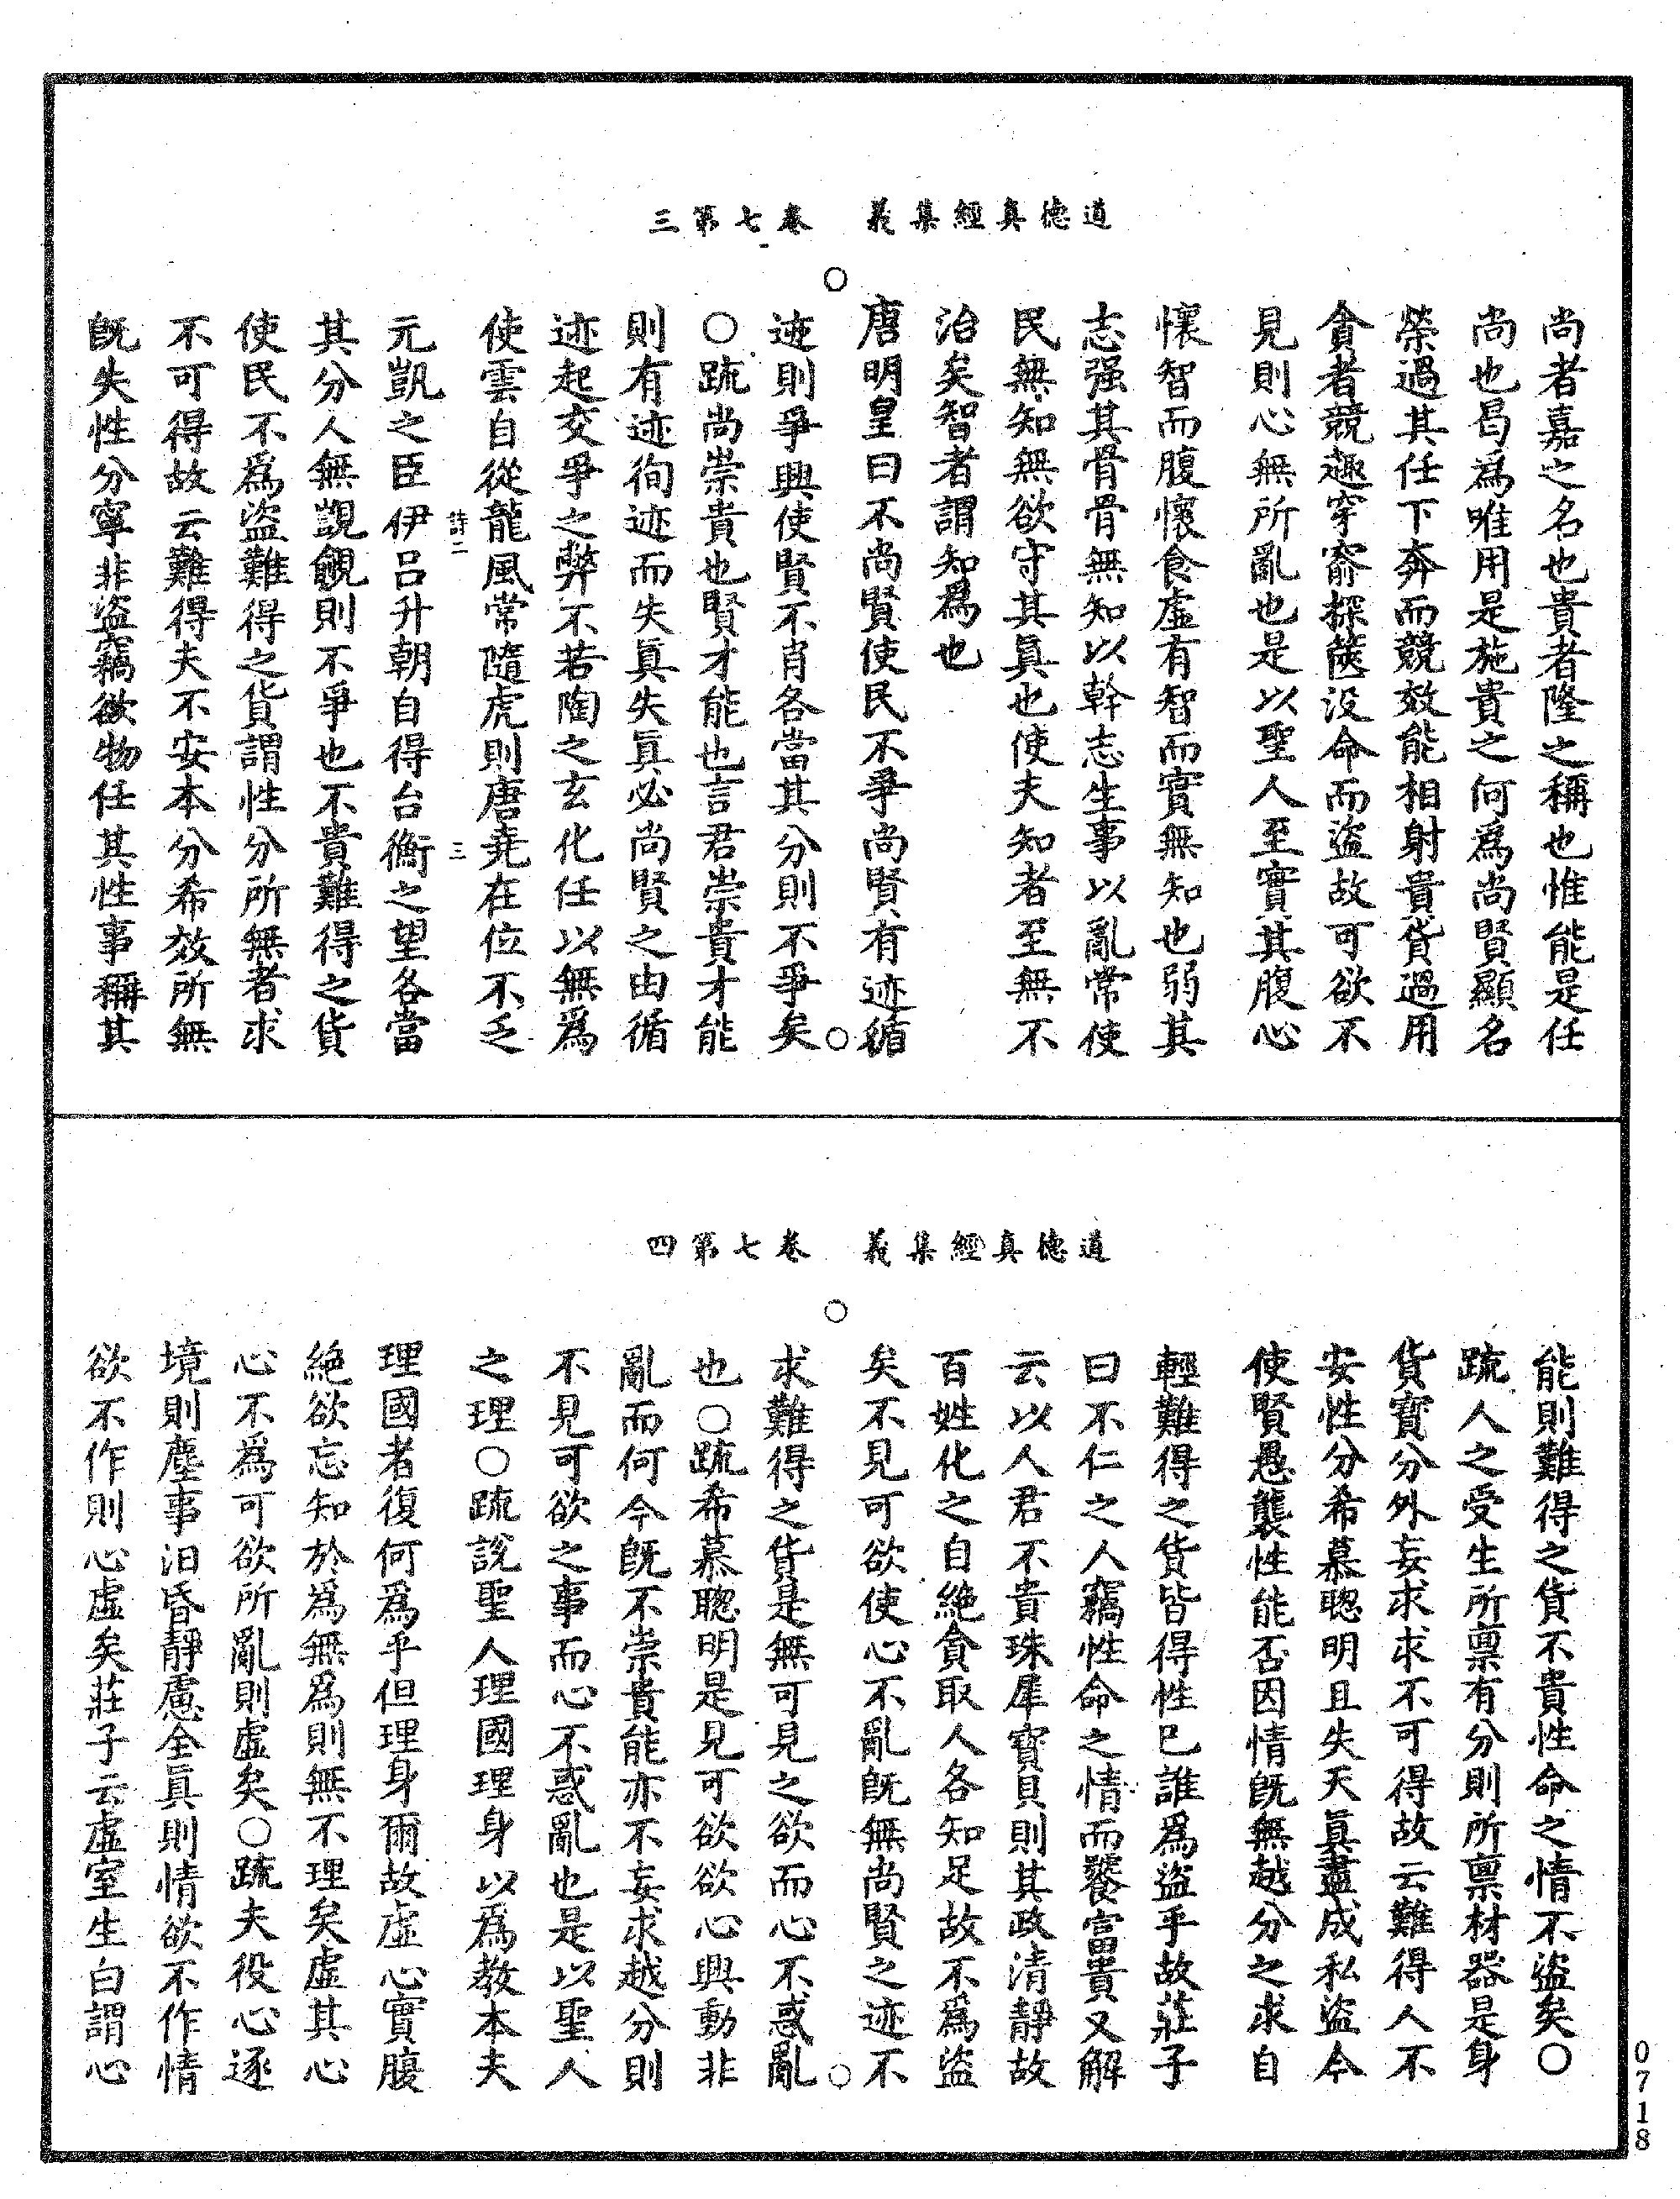 道德真經集義　卷七第三
尚者嘉之名也貴者隆之稱也惟能是任
尚也曷爲唯用是施貴之何爲尚賢顯名
榮過其任下奔而競效能相射貴貨過用
貪者競趣穿窬探篋没命而盜故可欲不
見則心無所亂也是以聖人至實其腹心
懷智而腹懷食虛有智而實無知也弱其
志强其骨骨無知以幹志生事以亂常使
民無知無欲守其眞也使夫知者至無不
治矣智者謂知爲也
唐明皇曰不尚賢使民不爭尚賢有迹循
迹則爭興使賢不肖各當其分則不爭矣
○疏尚崇貴也賢才能也言君崇貴才能
則有迹徇迹而失眞失眞必尚賢之由循
迹起交爭之弊不若陶之玄化任以無爲
使雲自從龍風常隨虎則唐堯在位不乏
詩二　三
元凱之臣伊吕升朝自得台衡之望各當
其分人無覬覦則不爭也不貴難得之貨
使民不爲盜難得之貨謂性分所無者求
不可得故云難得夫不安本分希效所無
旣失性分寧非盜竊欲物任其性事稱其
道德真經集義　卷七第四
能則難得之貨不貴性命之情不盜矣○
疏人之受生所禀有分則所禀材器是身
貨寶分外妄求求不可得故云難得人不
安性分希慕聰明且失天眞盡成私盜今
使賢愚襲性能否因情旣無越分之求自
輕難得之貨皆得性已誰爲盜乎故莊子
曰不仁之人竊性命之情而饕富貴又解
云以人君不貴珠犀寶貝則其政清靜故
百姓化之自絶貪取人各知足故不爲盜
矣不見可欲使心不亂旣無尚賢之迹不
求難得之貨是無可見之欲而心不惑亂
也○疏希慕聰明是見可欲欲心興動非
亂而何今旣不崇貴能亦不妄求越分則
不見可欲之事而心不惑亂也是以聖人
之理○疏說聖人理國理身以爲教本夫
理國者復何爲乎但理身爾故虛心實腹
絶欲忘知於爲無爲則無不理矣虛其心
心不爲可欲所亂則虛矣○疏夫役心逐
境則塵事汩昏靜慮全眞則情欲不作情
欲不作則心虛矣莊子云虛室生白謂心
0718